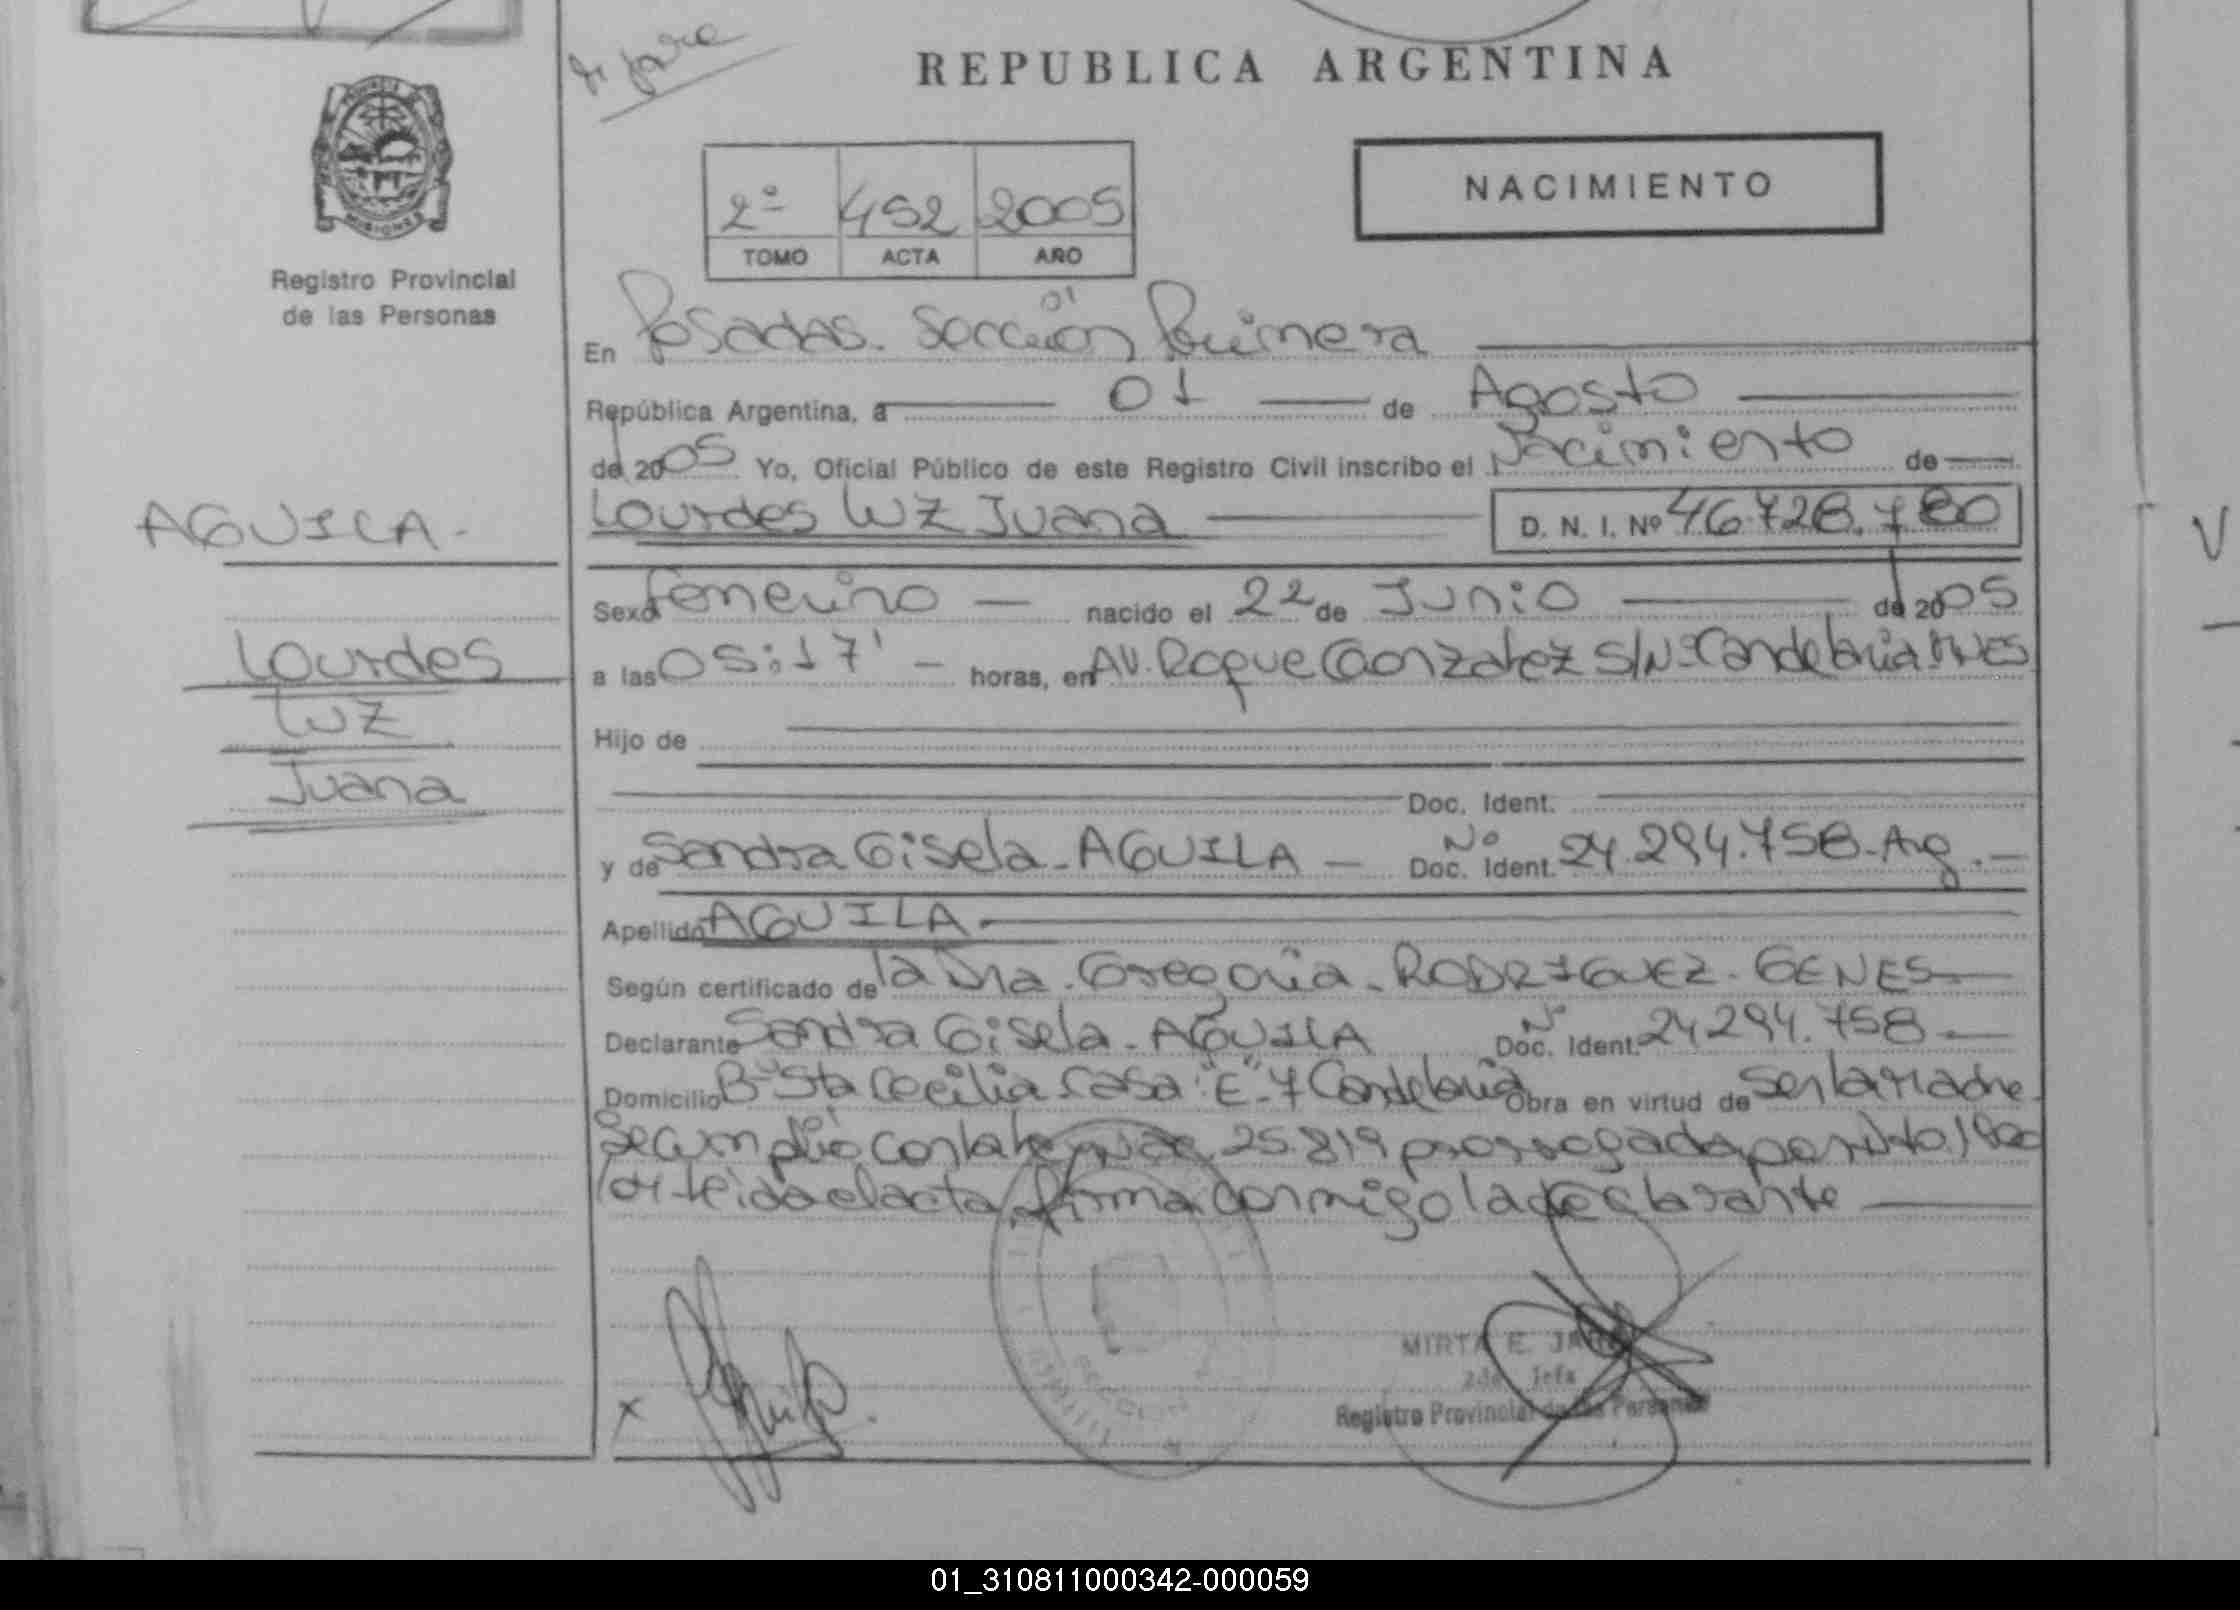 REPUBLICA ARGENTINA
NACIMIENTO
2º 452 2005
TOMO ACTA AÑO
Registro Provincial
de las Personas
En Posadas. Sección Primera
República Argentina, a 01 de Agosto
del 2005 Yo, Oficial Público de este Registro Civil inscribo el Nacimiento de
Lourdes Luz Juana D. N. I. Nº 46.728.780
AGUILA.
Lourdes
Luz
Juana
Sexo femenino nacido el 22 de Junio del 2005
a las 05:17' horas, en AV. Roque Gonzalez S/Nº Candelaria Mnes
Hijo de
Doc. Ident.
y de Sandra Gisela. AGUILA Nº Doc. Ident. 24.294.758. Arg.
Apellido AGUILA.
Según certificado de la Dra. Gregoria. RODRIGUEZ. GENES.
Declarante Sandra Gisela. AGUILA Nº Doc. Ident. 24.294.758
Domicilio Bº Sta Cecilia casa "E". 7 Candelaria Obra en virtud de ser la Madre.
Se cumplió con la ley 25.819 prorrogada por
Leida el acta, firma conmigo la declarante
MIRTA E. JARA
2da Jefa
Registro Provincial de las Personas
SECCION
01_310811000342-000059